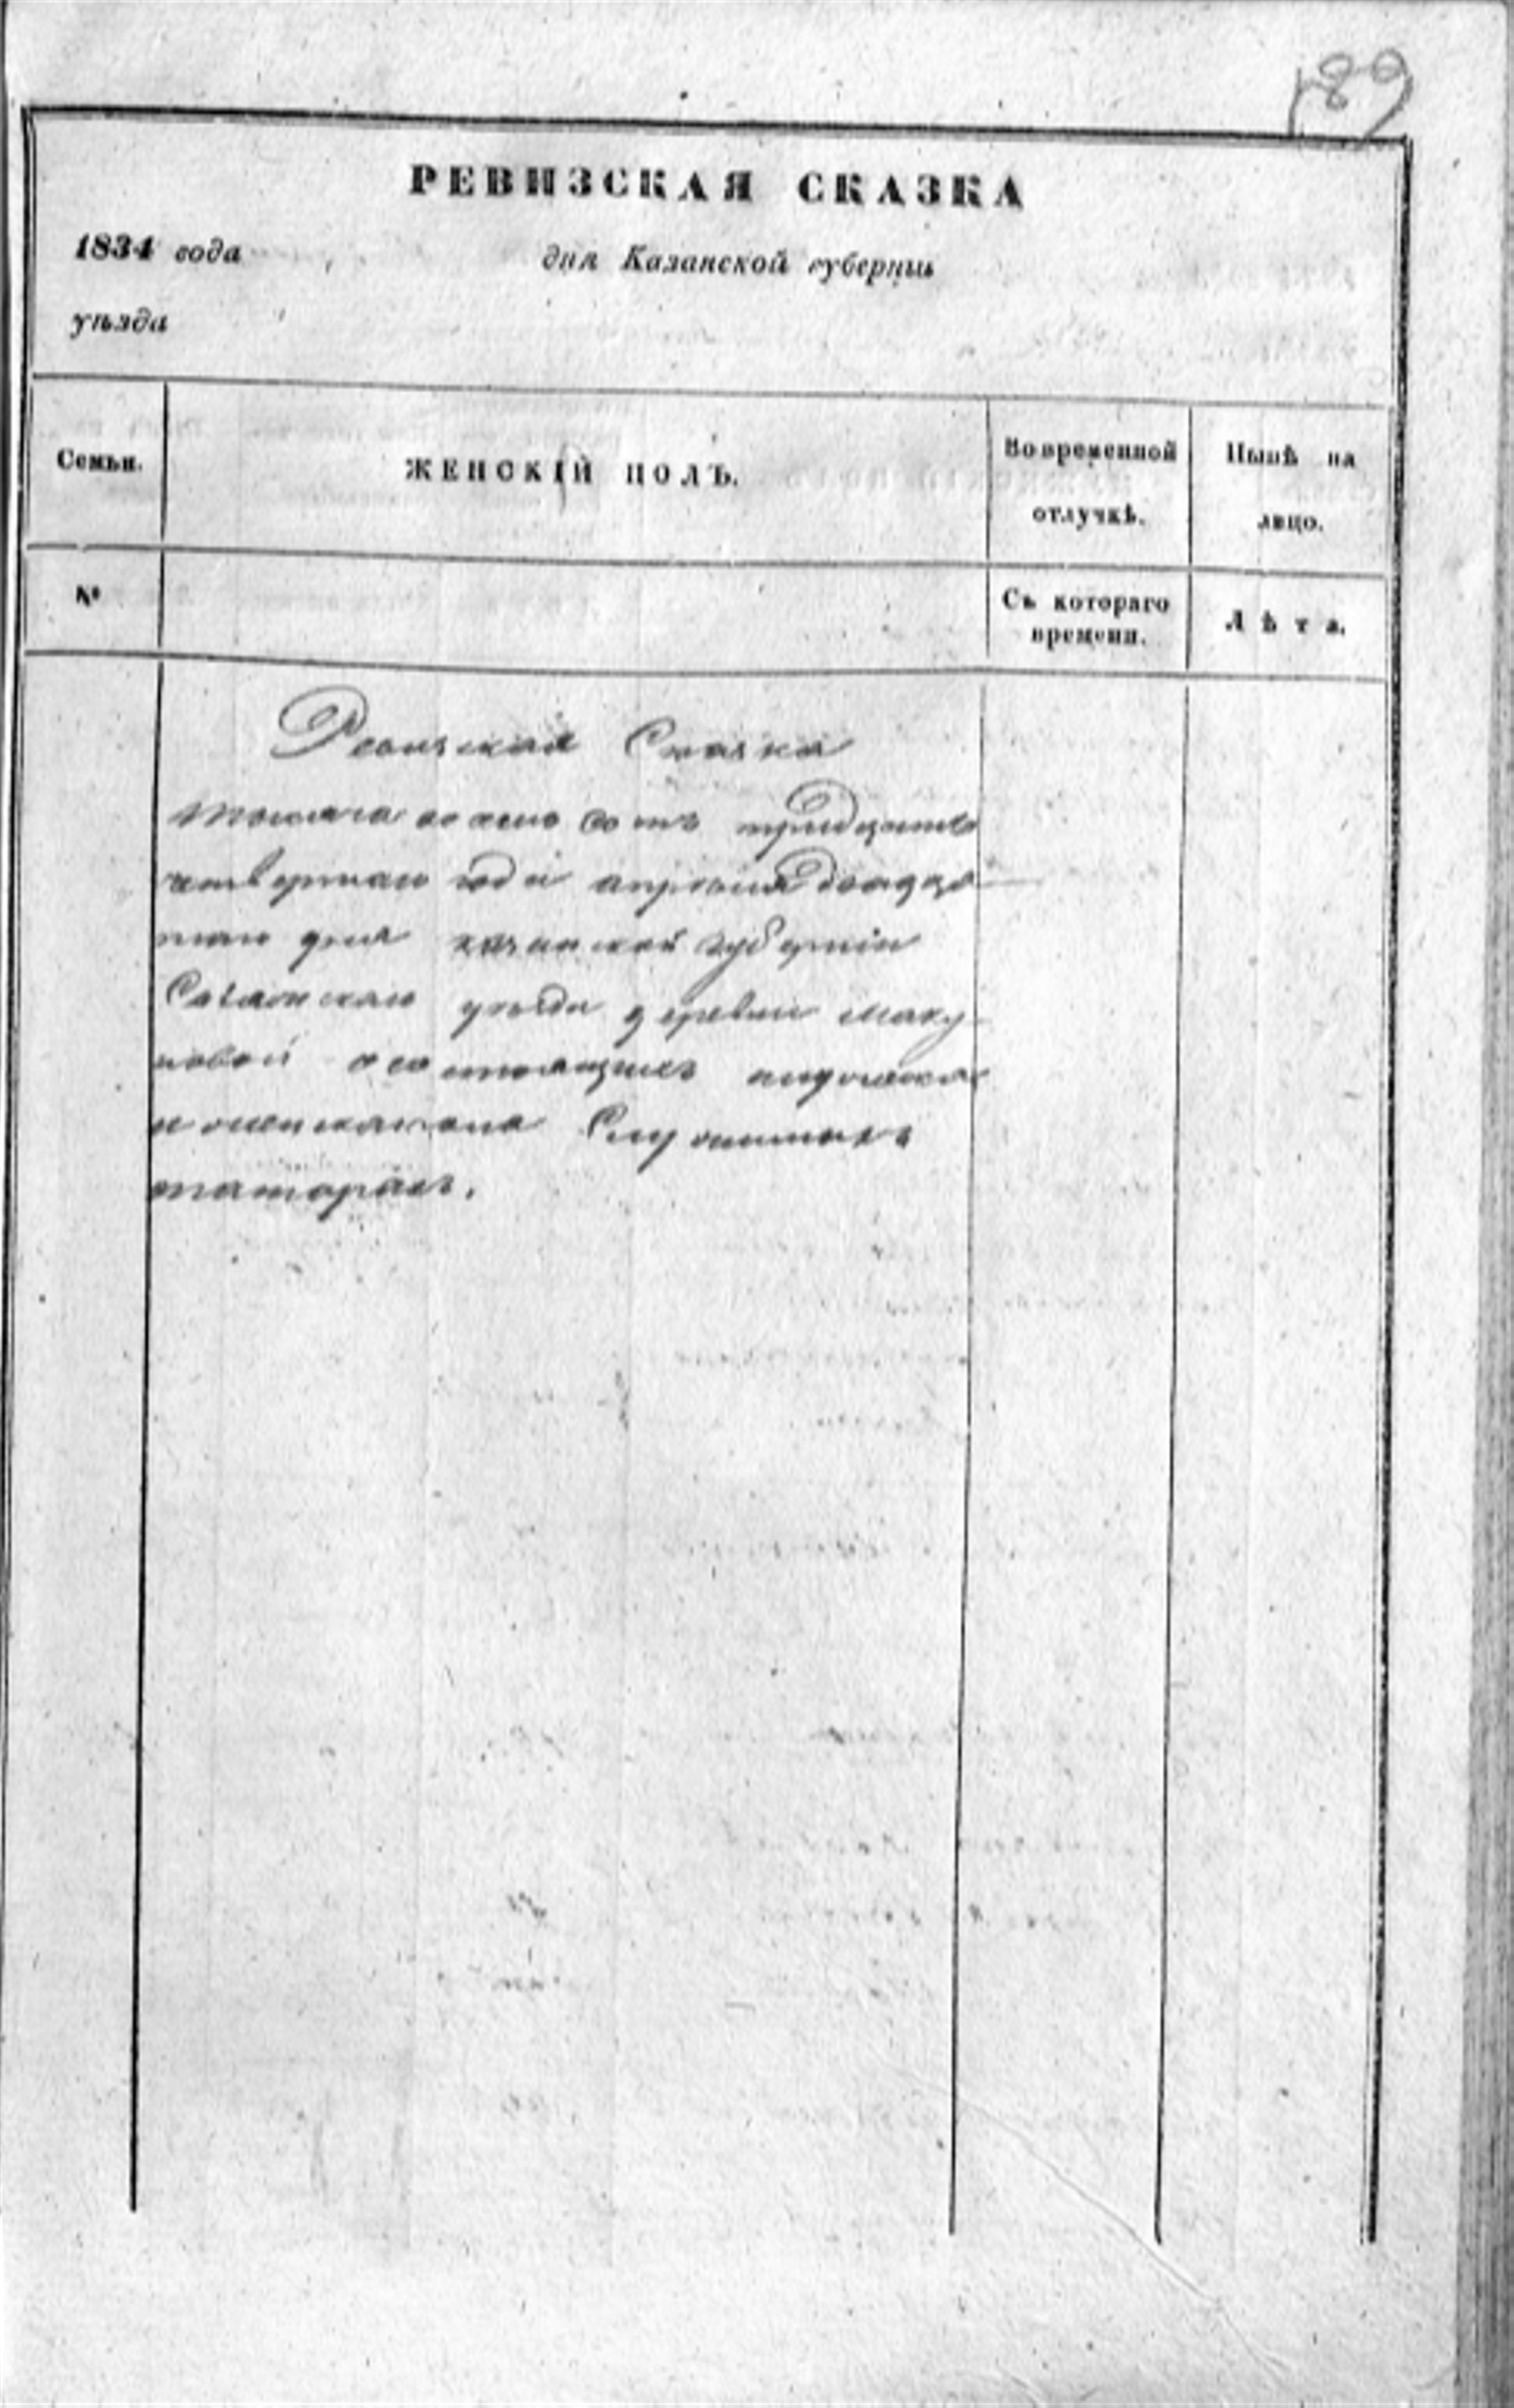 189
РЕВИЗСКАЯ СКАЗКА
1834 года дня Казанской губерніи
уѣзда
Семьи. ЖЕНСКІЙ ПОЛЪ. Во временной отлучкѣ. Нынѣ на лицо.
№ Съ котораго времени. Лѣта.
Ревизская Сказка
тысяча восемь сотъ тридцать
четвертаго года апреля двадца
таго дня казанской губерніи
уезда деревни Маку
ловой о состоящихъ
Служилыхъ
татарахъ.